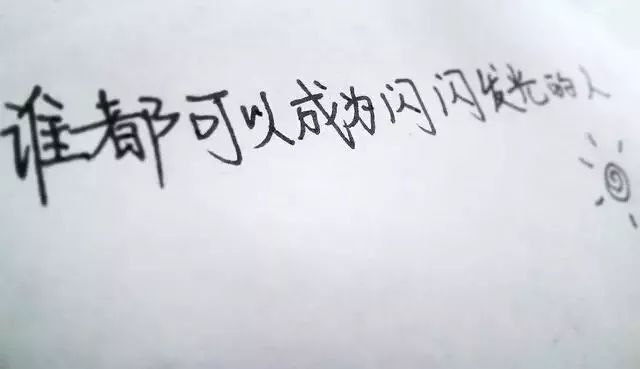 谁都可以成为闪闪发光的人